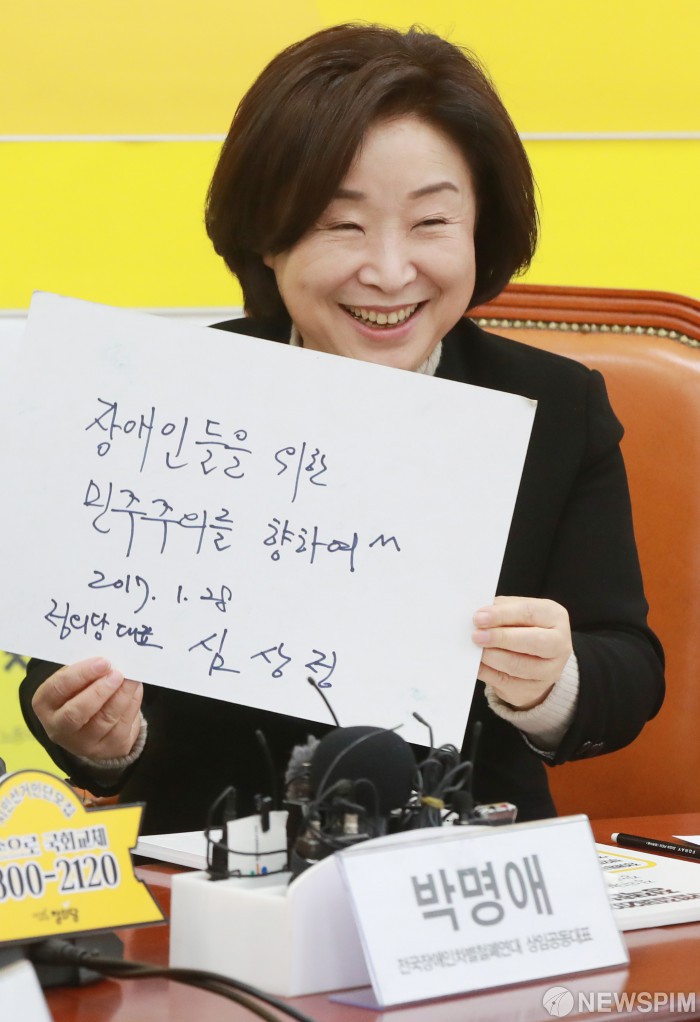 장애인들을 위한
민주주의를 향하여~
2017. 1. 28
정의당 대표 심상정
시민선거인단모집
으로 국회교체
800-2120
정의당
박명애
전국장애인차별철폐연대 상임공동대표
FORAY
NEWSPIM